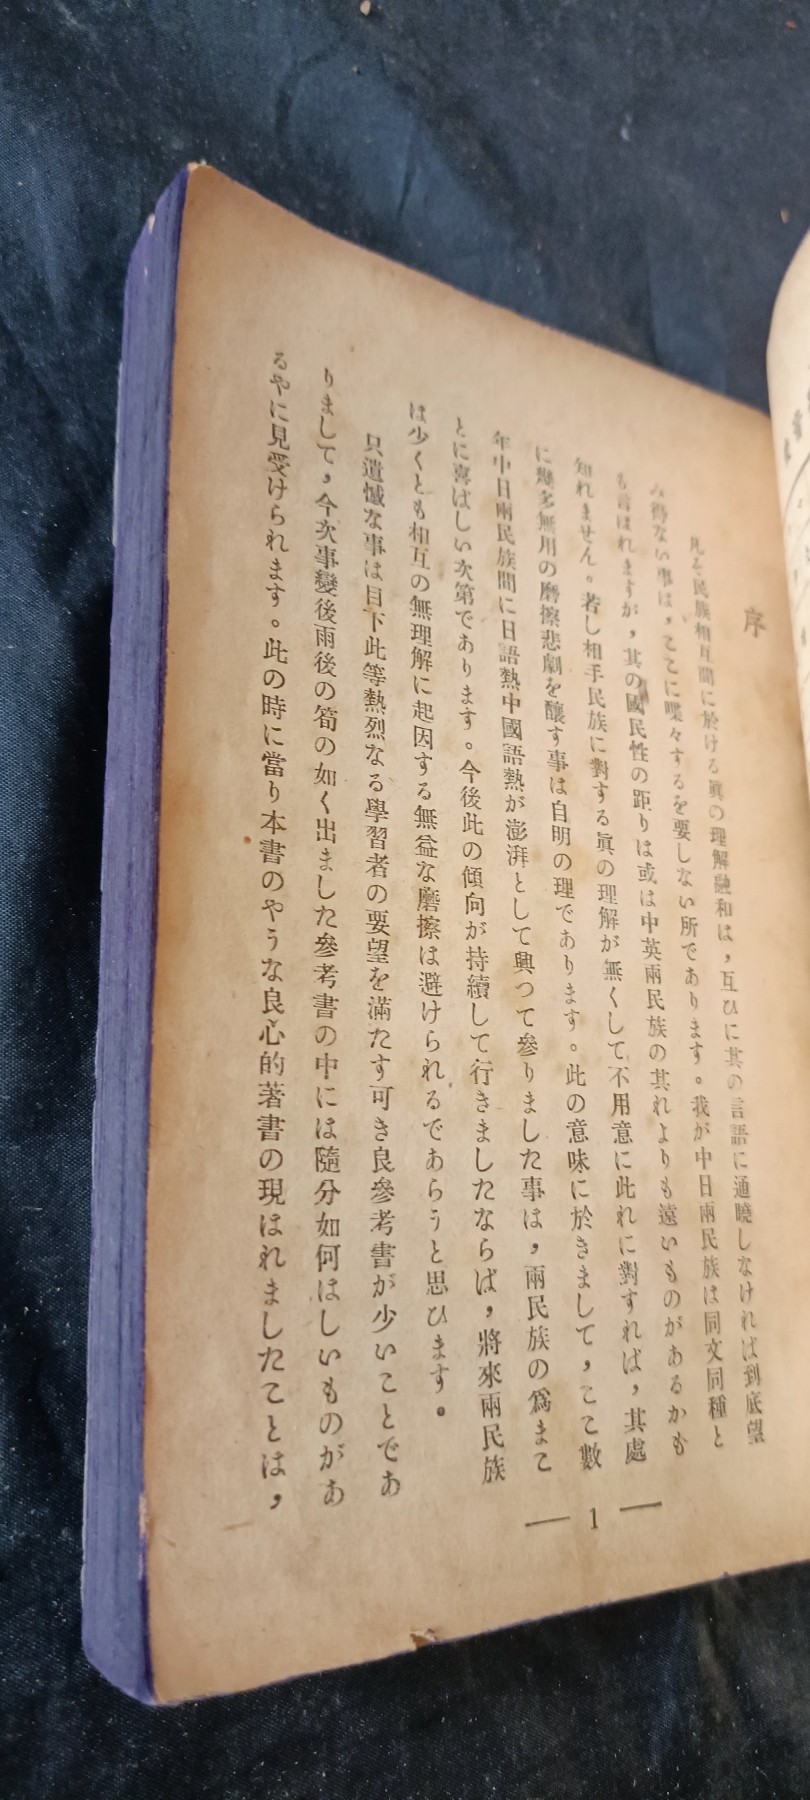 序
凡そ民族相互間に於ける眞の理解融和は，互ひに其の言語に通曉しなければ到底望
み得ない事は，ここに喋々するを要しない所であります。我が中日兩民族は同文同種と
も言はれますが，其の國民性の距りは或は中英兩民族の其れよりも遠いものがあるかも
知れません。若し相手民族に對する眞の理解が無くして不用意に此れに對すれば，其處
に幾多無用の磨擦悲劇を釀す事は自明の理であります。此の意味に於きまして，ここ數
年中日兩民族間に日語熱中國語熱が澎湃として興つて參りました事は，兩民族の爲まこ
とに喜ばしい次第であります。今後此の傾向が持續して行きましたならば，將來兩民族
は少くとも相互の無理解に起因する無益な磨擦は避けられるであらうと思ひます。
只遺憾な事は目下此等熱烈なる學習者の要望を滿たす可き良參考書が少いことであ
りまして，今次事變後雨後の筍の如く出ました參考書の中には隨分如何はしいものがあ
るやに見受けられます。此の時に當り本書のやうな良心的著書の現はれましたことは，
— 1 —